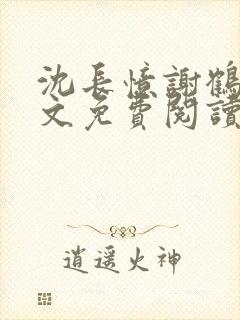 沈長憶謝鶴
文免費閱讀
逍遥火神